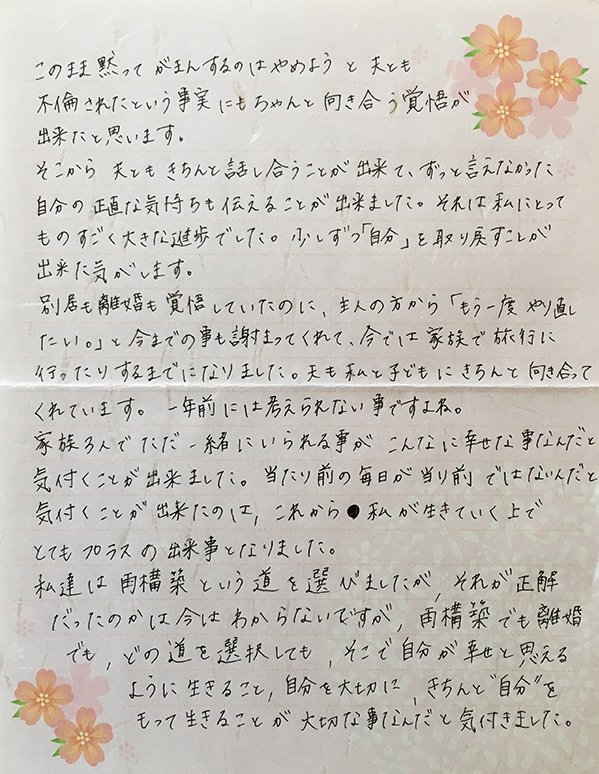 このまま黙って がまんするのはやめようと 夫とも
不倫されたという事実にもちゃんと向き合う覚悟が
出来たと思います。
そこから 夫とも きちんと話し合うことが出来て、ずっと言えなかった
自分の正直な気持ちも伝えることが出来ました。それは私にとって
ものすごく大きな進歩でした。少しずつ「自分」を取り戻すことが
出来た気がします。
別居も離婚も覚悟していたのに、主人の方から「もう一度やり直し
たい。」と今までの事も謝まってくれて、今では家族で旅行に
行ったりするまでになりました。夫も私と子どもにきちんと向き合って
くれています。一年前には考えられない事ですよね。
家族3人でただ一緒にいられる事が こんなに幸せな事なんだと
気付くことが出来ました。当たり前の毎日が当り前ではないんだと
気付くことが出来たのは、これから 私が生きていく上で
とてもプラスの出来事となりました。
私達は再構築という道を選びましたが、それが正解
だったのかは今はわからないですが、再構築でも離婚
でも、どの道を選択しても、そこで自分が幸せと思える
ように生きること、自分を大切に、きちんと"自分"を
もって生きることが大切な事なんだと気付きました。